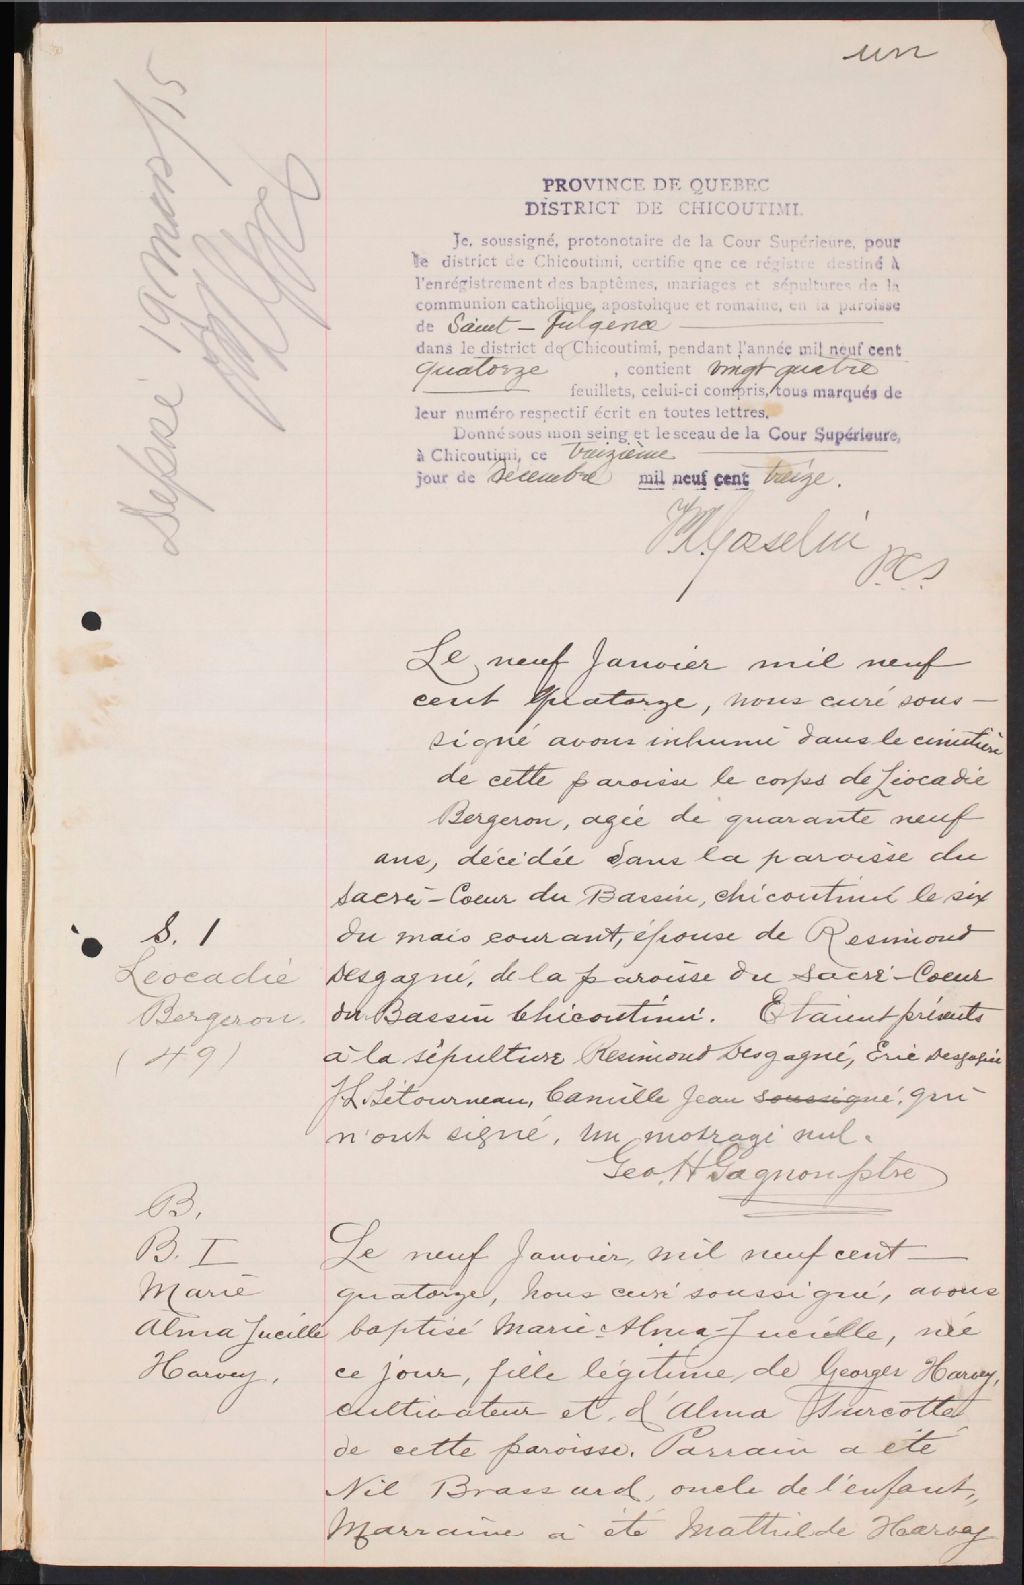 un
Déposé 19 mars/15
PROVINCE DE QUEBEC
DISTRICT DE CHICOUTIMI.
Je, soussigné, protonotaire de la Cour Supérieure, pour
le district de Chicoutimi, certifie qne ce régistre destiné à
l'enrégistrement des baptêmes, mariages et sépultures de la
communion catholique, apostolique et romaine, en la paroisse
de Saint-Fulgence
dans le district de Chicoutimi, pendant l'année mil neuf cent
quatorze, contient vingt quatre
feuillets, celui-ci compris, tous marqués de
leur numéro respectif écrit en toutes lettres.
Donné sous mon seing et le sceau de la Cour Supérieure,
à Chicoutimi, ce treizième
jour de décembre mil neuf cent treize.
Gosselin
P.C.S
Le neuf Janvier mil neuf
cent quatorze, nous curé sous-
signé avons inhumé dans le cimetière
de cette paroisse le corps de Léocadie
Bergeron, agée de quarante neuf
ans, décédée dans la paroisse du
Sacré-Coeur du Bassin, chicoutimi le six
S. 1
du mois courant, épouse de Resimond
Léocadie
Desgagné, de la paroisse du Sacré-Coeur
Bergeron.
du Bassin Chicoutimi. Etaient présents
(49)
à la sépulture Resimond Desgagné, Eric Desgagné
J.L. Létourneau, Camille Jean soussigné, qui
n'ont signé, un mot rayé nul.
Geo. H Gagnon ptre
B.
B. I
Le neuf Janvier, mil neuf cent
Marie
quatorze, nous curé soussigné, avons
Alma Lucille
baptisé Marie-Alma-Lucille, née
Harvey,
ce jour, fille légitime, de Georges Harvey,
cultivateur et d'Alma Turcotte
de cette paroisse. Parrain a été
Nil Brassard, oncle de l'enfant,
Marraine a été Mathilde Harvey